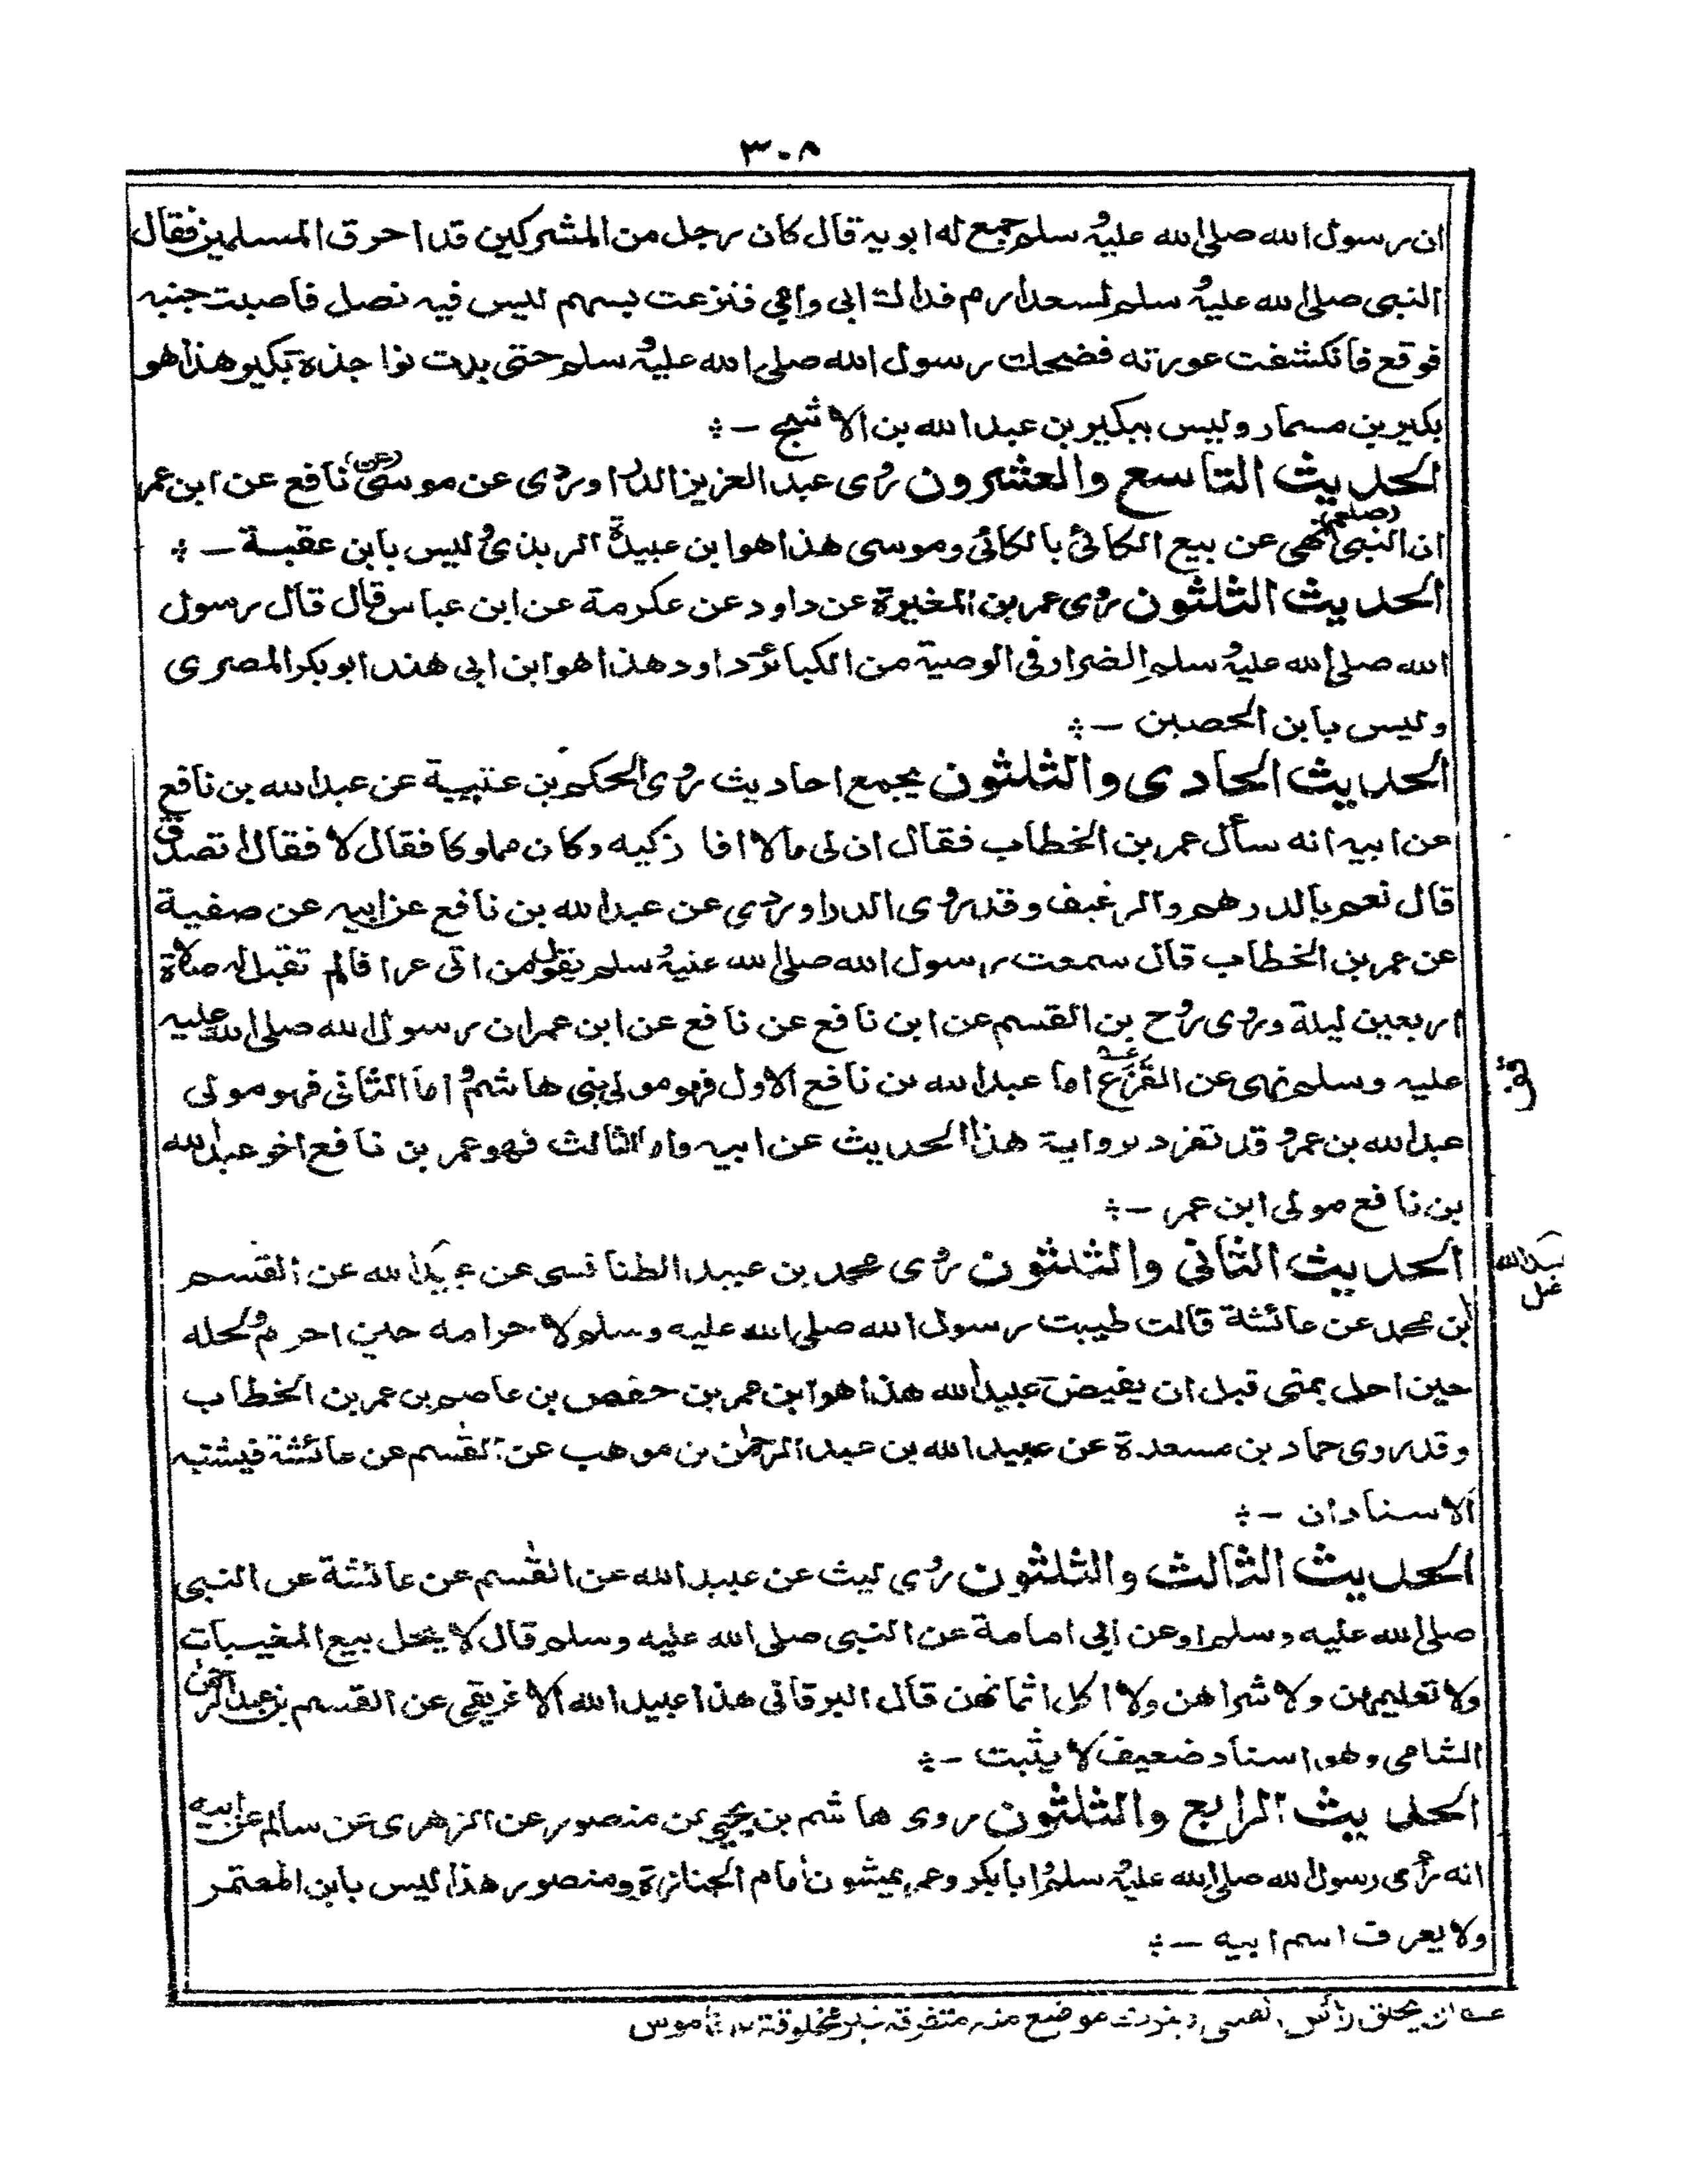 ٣٠٨
ان رسول الله صلى الله عليه وسلم جمع له ابويه قال كان رجل من المشركين قد احرق المسلمين فقال
النبى صلى الله عليه وسلم لسعد ارم فداك ابى وامى فنزعت بسهم ليس فيه نصل فاصبت جنبه
فوقع فانكشفت عورته فضحك رسول الله صلى الله عليه وسلم حتى بدت نواجذه بكير هذا هو
بكير بن مسمار وليس ببكير بن عبد الله بن الاشج -
الحديث التاسع والعشرون روى عبد العزيز الدراوردى عن موسى (عن) نافع عن ابن عمر
ان النبى (صلعم) نهى عن بيع الكالئ بالكالئ وموسى هذا هو ابن عبيدة الربذى وليس بابن عقبة -
الحديث الثلثون روى عمر بن المغيرة عن داود عن عكرمة عن ابن عباس قال قال رسول
الله صلى الله عليه وسلم الضرار فى الوصية من الكبائر داود هذا هو ابن ابى هند ابو بكر المصرى
وليس بابن الحصين -
الحديث الحادى والثلثون يجمع احاديث روى الحكم بن عتيبة عن عبد الله بن نافع
عن ابيه انه سأل عمر بن الخطاب فقال ان لى مالا افا زكيه وكان مملوكا فقال لا فقال اتصدق
قال نعم بالدرهم والرغيف وقد روى الدراوردى عن عبد الله بن نافع عن ابيه عن صفية
عن عمر بن الخطاب قال سمعت رسول الله صلى الله عليه وسلم يقول من اتى عرافا لم تقبل له صلاة
اربعين ليلة وروى روح بن القسم عن ابن نافع عن نافع عن ابن عمر ان رسول الله صلى الله عليه
عليه وسلم نهى عن القزع اما عبد الله بن نافع الاول فهو مولى بنى هاشم واما الثانى فهو مولى
عبد الله بن عمر وقد تفرد برواية هذا الحديث عن ابيه واما الثالث فهو عمر بن نافع اخو عبد الله
بن نافع مولى ابن عمر -
الحديث الثانى والثلثون روى محمد بن عبيد الطنافسى عن عبيد الله عن القسم
بن محمد عن عائشة قالت طيبت رسول الله صلى الله عليه وسلم لاحرامه حين احرم ولحله
حين احل بمنى قبل ان يفيض عبيد الله هذا هو ابن عمر بن حفص بن عاصم بن عمر بن الخطاب
وقد روى حماد بن مسعدة عن عبيد الله بن عبد الرحمن بن موهب عن القسم عن عائشة فيشتبه
الاسنادان -
الحديث الثالث والثلثون روى ليث عن عبيد الله عن القسم عن عائشة عن النبى
صلى الله عليه وسلم وعن ابى امامة عن النبى صلى الله عليه وسلم قال لا يحل بيع المغنيات
ولا تعليمهن ولا شراهن ولا اكل اثمانهن قال البرقانى هذا عبيد الله الافريقى عن القسم بن عبد الرحمن
الشامى وهو اسناد ضعيف لا يثبت -
الحديث الرابع والثلثون روى هاشم بن يحيى عن منصور عن الزهرى عن سالم عن ابيه
انه رأى رسول الله صلى الله عليه وسلم وابا بكر وعمر يمشون امام الجنازة ومنصور هذا ليس بابن المعتمر
ولا يعرف اسم ابيه -
عه ان يحلق رأس الصبى ويترك موضع منه متفرقة غير مخلوقة ١٢ قاموس